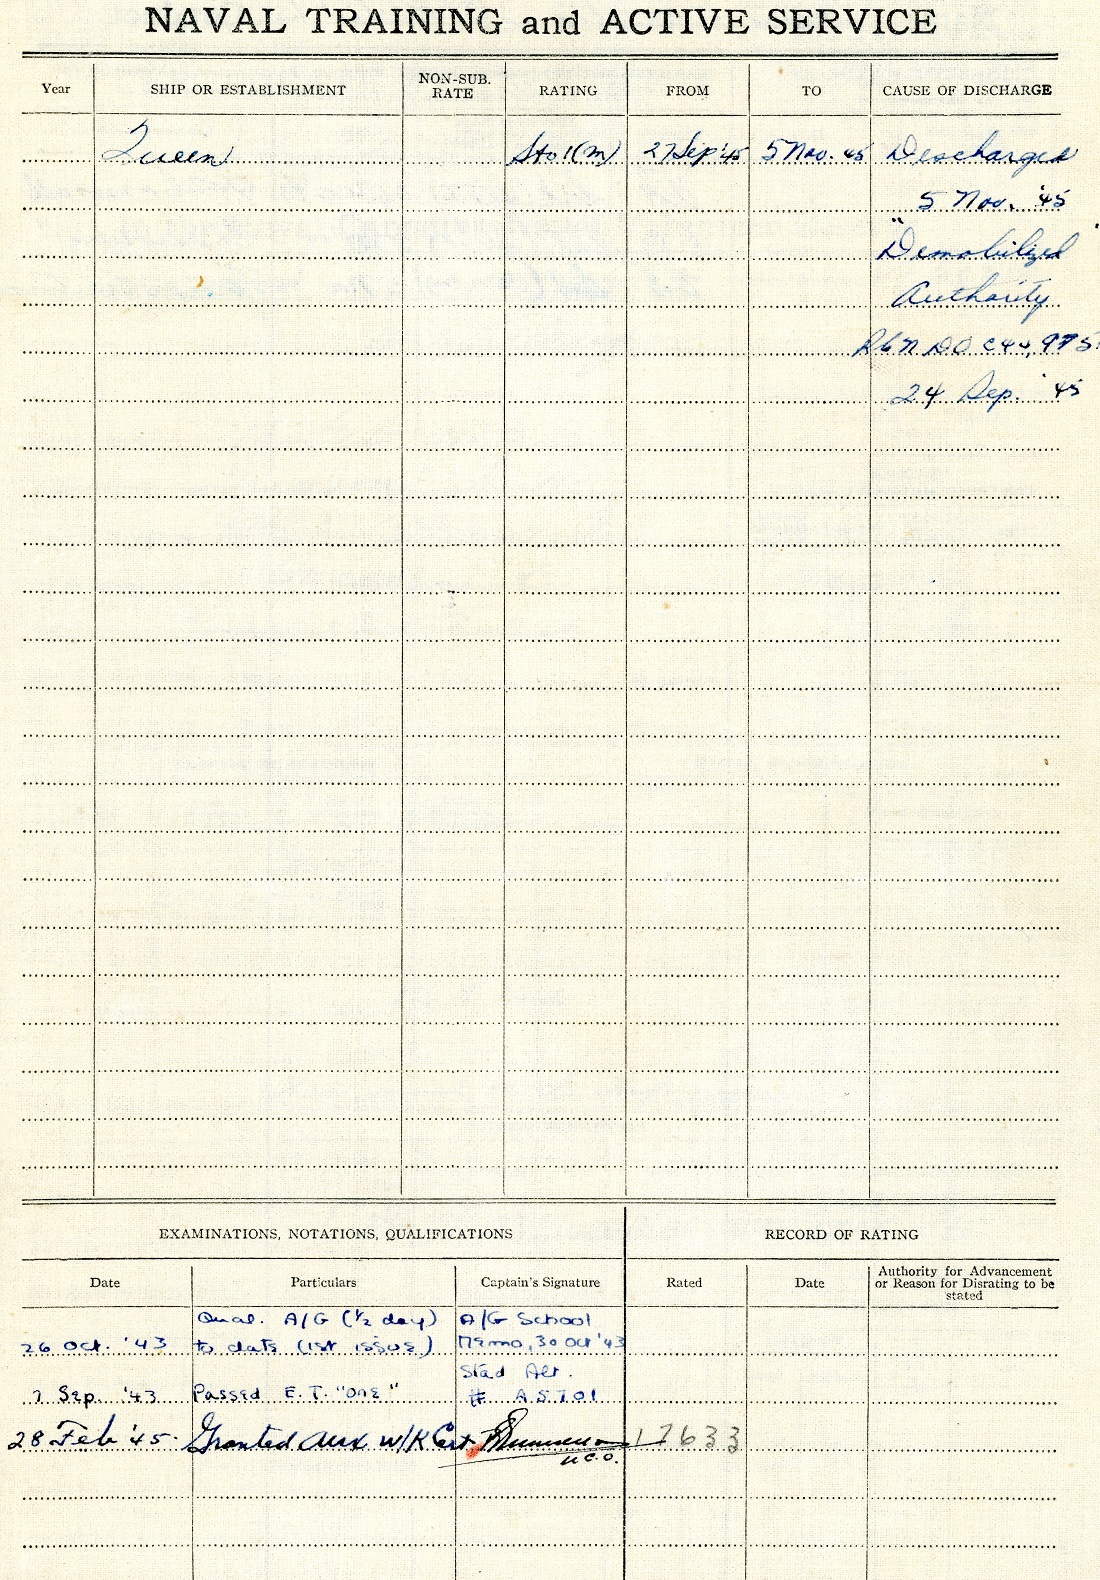 NAVAL TRAINING and ACTIVE SERVICE
Year SHIP OR ESTABLISHMENT NON-SUB. RATE RATING FROM TO CAUSE OF DISCHARGE
Queen Sto 1(M) 27 Sep '45 5 Nov. 45 Discharged
5 Nov. '45
"Demobilized"
Authority
24 Sep. '45
EXAMINATIONS, NOTATIONS, QUALIFICATIONS RECORD OF RATING
Date Particulars Captain's Signature Rated Date Authority for Advancement or Reason for Disrating to be stated
Qual. A/G (½ day) A/G School
26 Oct. '43 to date (1st issue) Memo, 30 Oct '43
Stad Alt.
7 Sep. '43 Passed E.T. "One" # A.5701
28 Feb '45. Granted Aux W/K Cert 17633